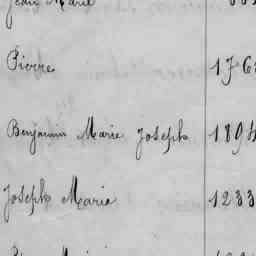 Jean Marie
Pierre 176
Benjamin Marie Joseph 1894
Joseph Marie 1233
Marie